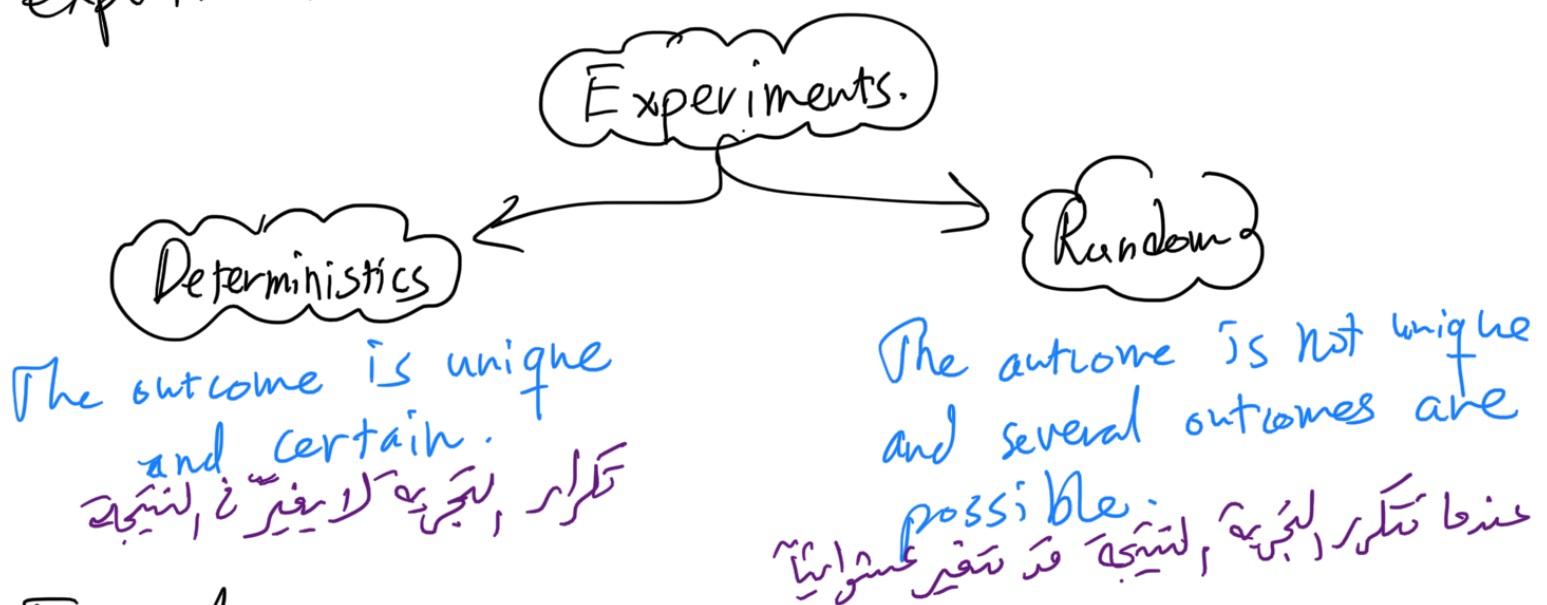 Experiments.
Deterministics
Random
The outcome is unique
and certain.
تكرار التجربة لا يغيّر في النتيجة
The outcome is not unique
and several outcomes are
possible.
عندما تتكرر التجربة النتيجة قد تتغير عشوائياً